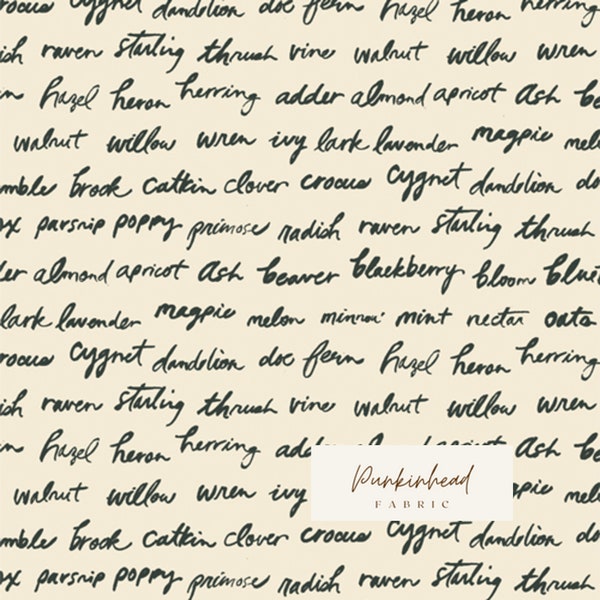 crocus cygnet dandelion doe fern hazel heron herring
raven starling thrush vine walnut willow wren
hazel heron herring adder almond apricot ash
walnut willow wren ivy lark lavender magpie
brook catkin clover crocus cygnet dandelion
parsnip poppy primose radish raven starling thrush
almond apricot ash beaver blackberry bloom
lark lavender magpie melon minnow mint nectar oats
cygnet dandelion doe fern hazel heron herring
raven starling thrush vine walnut willow wren
hazel heron herring ash
walnut willow wren ivy
Punkinhead
FABRIC
brook catkin clover crocus cygnet dandelion
parsnip poppy primose radish raven starling thrush